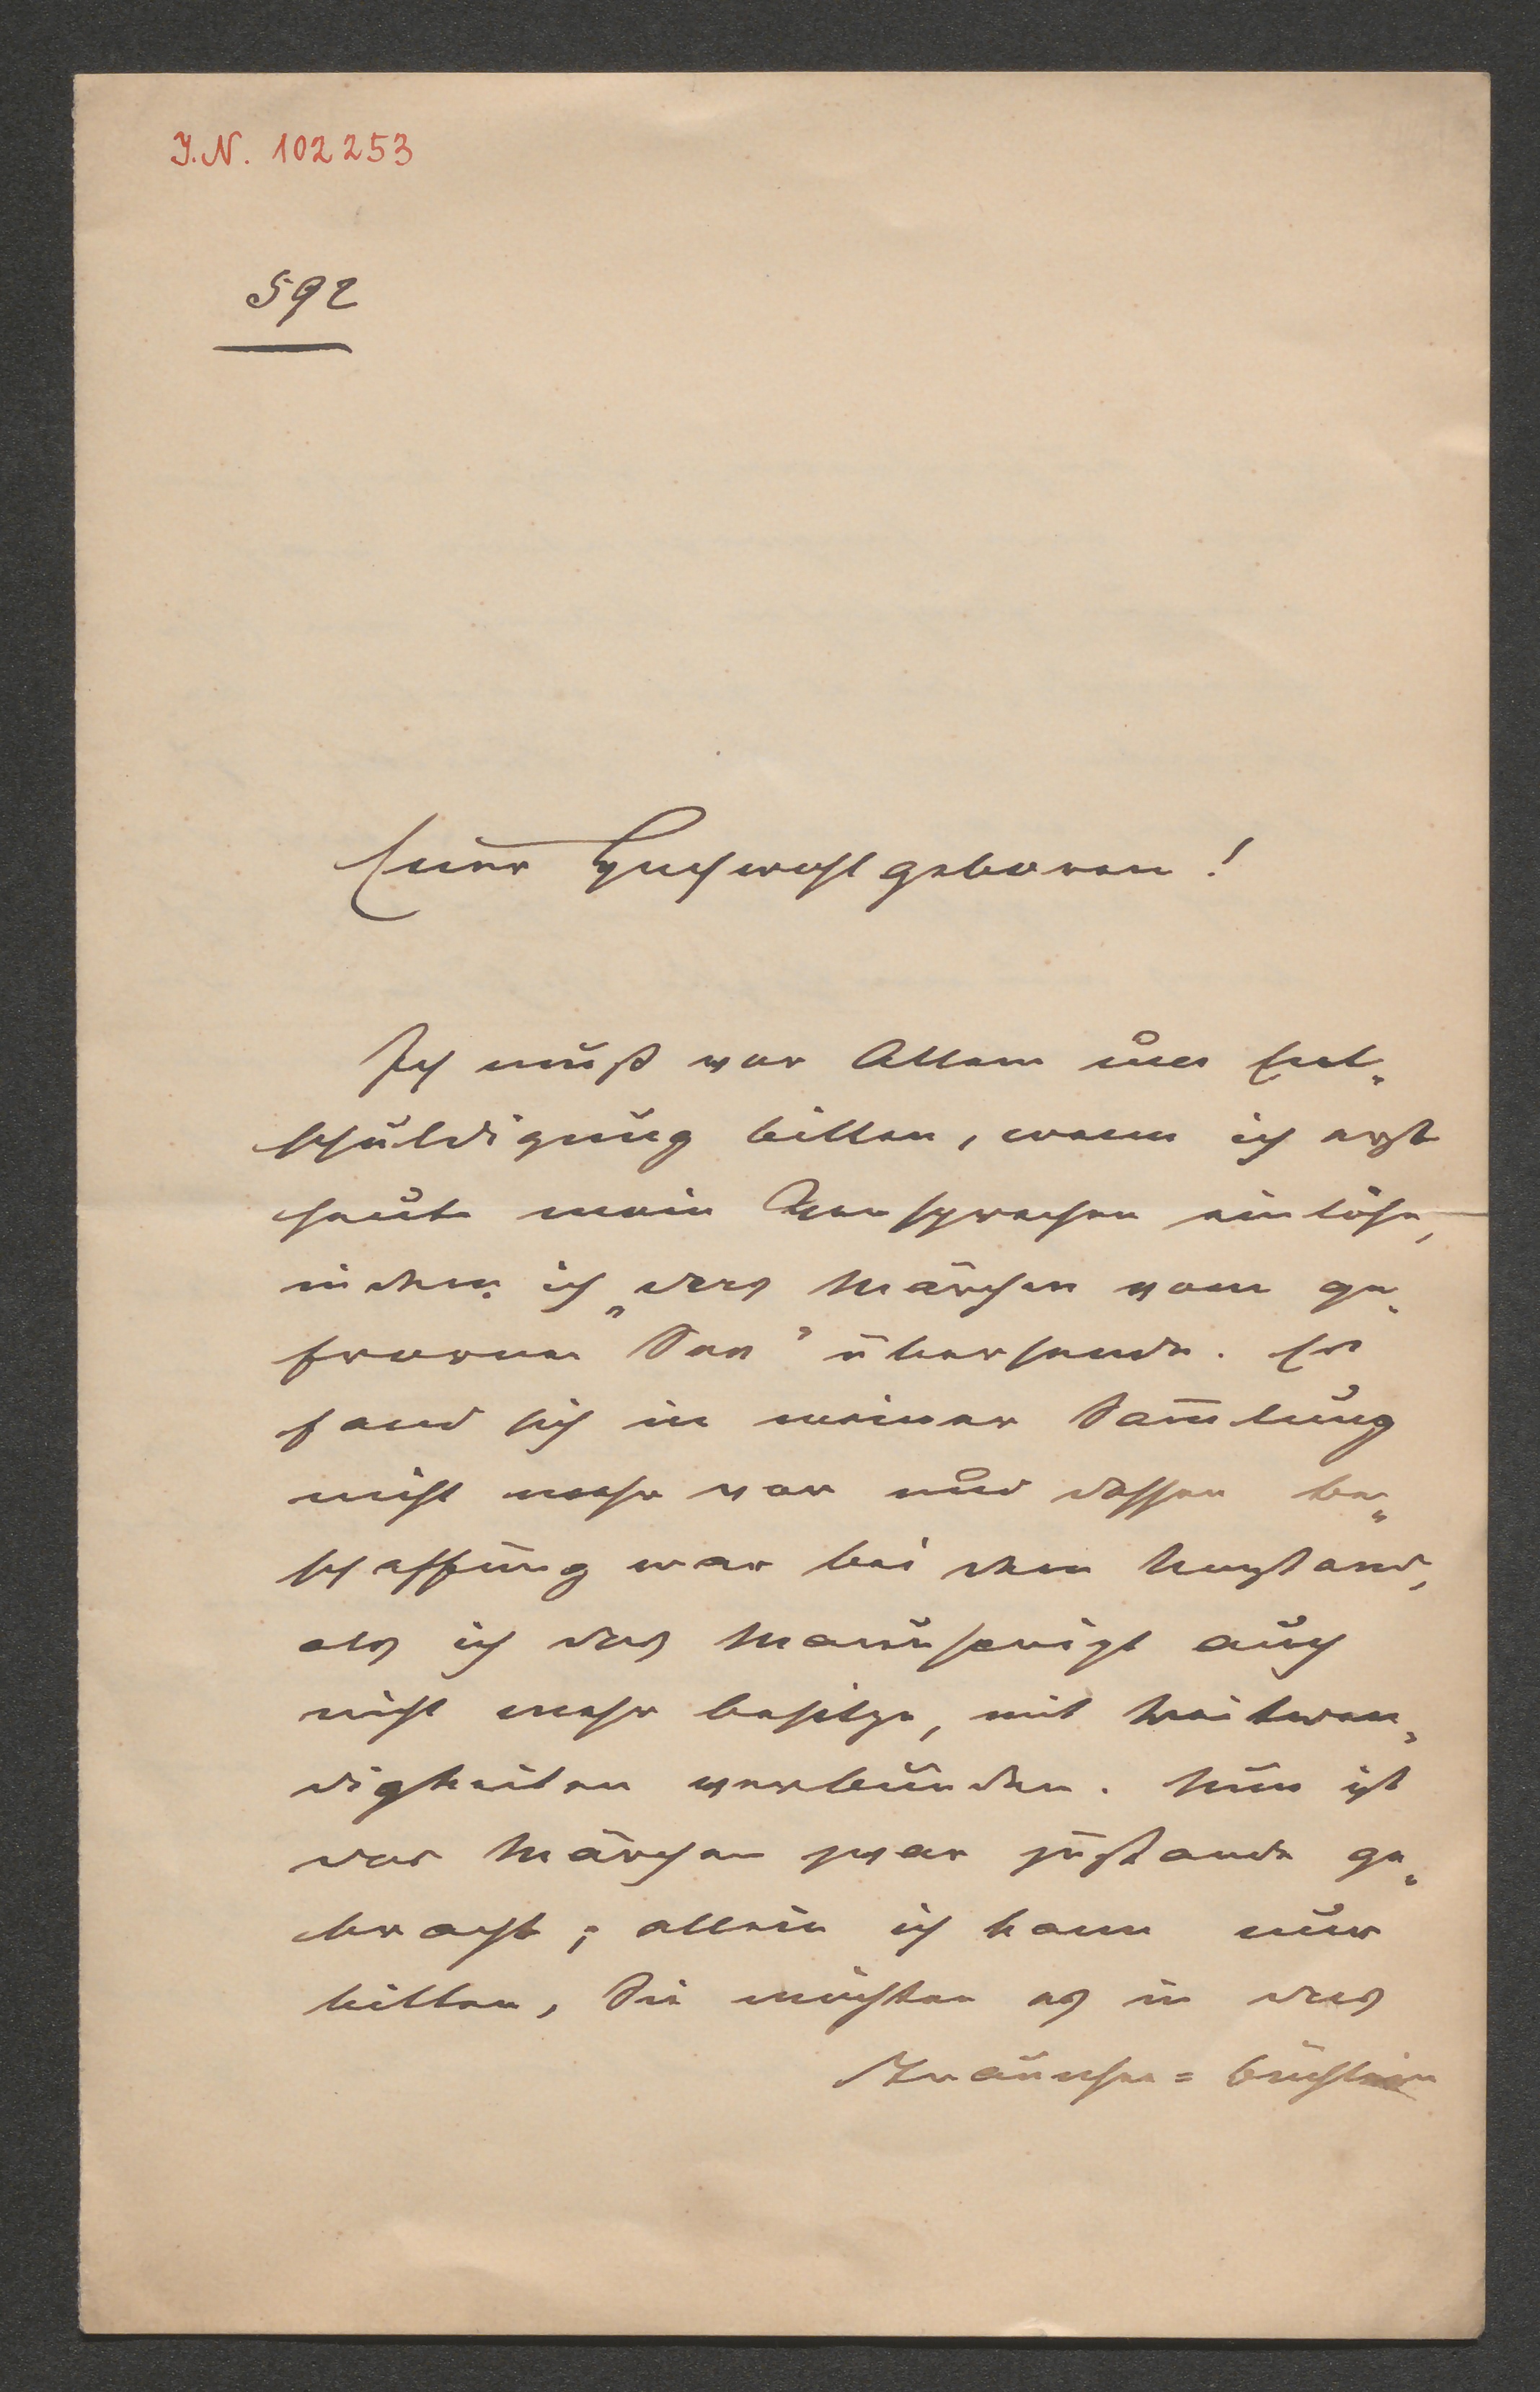 I.N. 102253
592
Euer Hochwohlgeboren!
Ich muß vor Allem um Ent-
schuldigung bitten, wenn ich erst
heute mein Versprechen einlöse,
indem ich „das Märchen vom ge-
frornen See" übersende. Es
fand sich in meiner Sam̄lung
nicht mehr vor und dessen Be-
schaffung war bei dem Umstand,
als ich das Manuscript auch
nicht mehr besitze, mit Weitwen-
digkeiten verbunden. Nun ist
das Märchen zwar zustande ge-
bracht; allein ich kann nur
bitten, Sie möchten es in das
büchlein